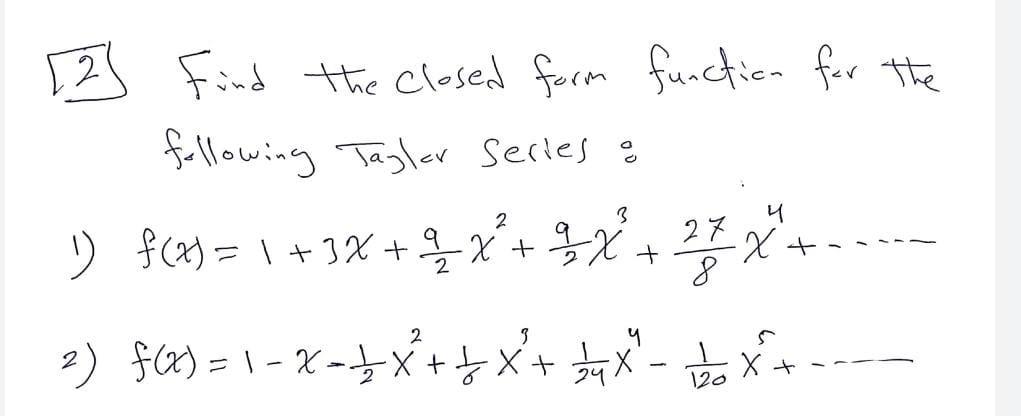 [2] Find the closed form function for the
following Taylor series :
1) f(x) = 1 + 3x + 9/2 x² + 9/2 x³ + 27/8 x⁴ + -----
2) f(x) = 1 - x - 1/2 x² + 1/6 x³ + 1/24 x⁴ - 1/120 x⁵ + ----